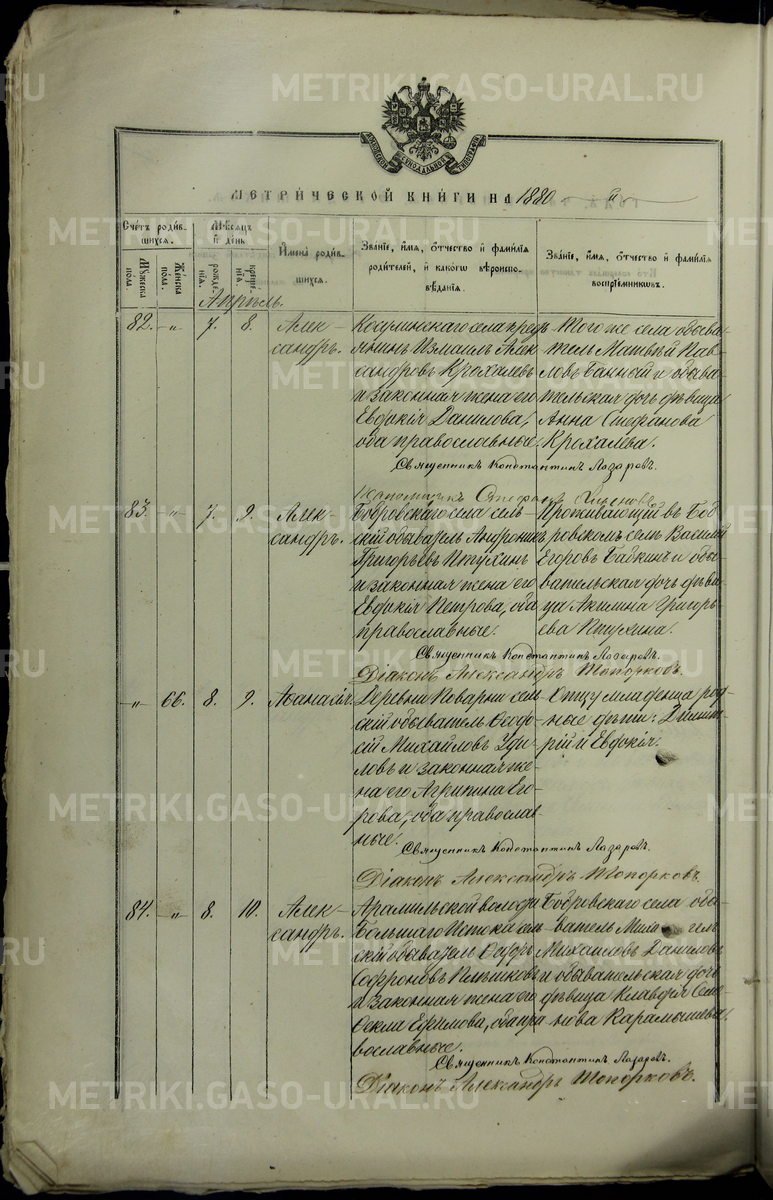 METRIKI.GASO-URAL.RU
МЕТРИ́ЧЕСКОЙ КНИ́ГИ НА 1880
Сче́тъ роди́в-
шихся.
Му́жеска
пола
Же́нска
пола.
Мѣ́сяцъ
и҆ день
рожде́-
нїѧ.
креще́-
нїѧ
И҆мена̀ роди́в-
шихся.
Зва́нїе, и҆́мѧ, ѻ҆́тчество и҆ фами́лїѧ
роди́телей, и҆ како́гѡ вѣроиспо-
вѣ́данїѧ.
Зва́нїе, и҆́мѧ, ѻ҆́тчество и҆ фами́лїѧ
воспрїе́мникѡвъ.
Апрѣль.
82. „ 7. 8. Алек-
сандръ.
Косулинскаго села
Измаилъ Алек-
сандровъ Крохалевъ
и законная жена его
Евдокія Данилова,
оба православные.
Того же села обыва-
тель Матвѣй Пав-
ловъ и обыва-
тельская дочь дѣвица
Анна Стефанова
Крохалева.
Священникъ Константинъ Лазаревъ.
83. „ 7. 9. Алек-
сандръ.
Бобровскаго села сель-
скій обыватель Андроникъ
Григорьевъ Птухинъ
и законная жена его
Евдокія Петрова, оба
православные.
Проживающій въ Боб-
ровскомъ селѣ Василій
Егоровъ Бабкинъ и обы-
вательская дочь дѣви-
ца Акилина Григорь-
ева Птухина.
Священникъ Константинъ Лазаревъ.
Діаконъ Александръ Топорковъ.
„ 66. 8. 9. Аѳанасія.
Деревни Поварни сель-
скій обыватель Ѳеодо-
сій Михайловъ
и законная же-
на его Агрипина Его-
рова, оба православ-
ные.
Отцу младенца род-
ные дѣти: Димит-
рій и Евдокія.
Священникъ Константинъ Лазаревъ.
Діаконъ Александръ Топорковъ.
84. „ 8. 10. Алек-
сандръ.
Арамильской волости
Большаго Истока сель-
скій обыватель
Софроновъ
и законная жена его
Ѳекла Ефимова, оба пра-
вославные.
Бобровскаго села обы-
ватель
Михаиловъ Даниловъ
и обывательская дочь
дѣвица Клавдія Семе-
нова Карамышева.
Священникъ Константинъ Лазаревъ.
Діаконъ Александръ Топорковъ.